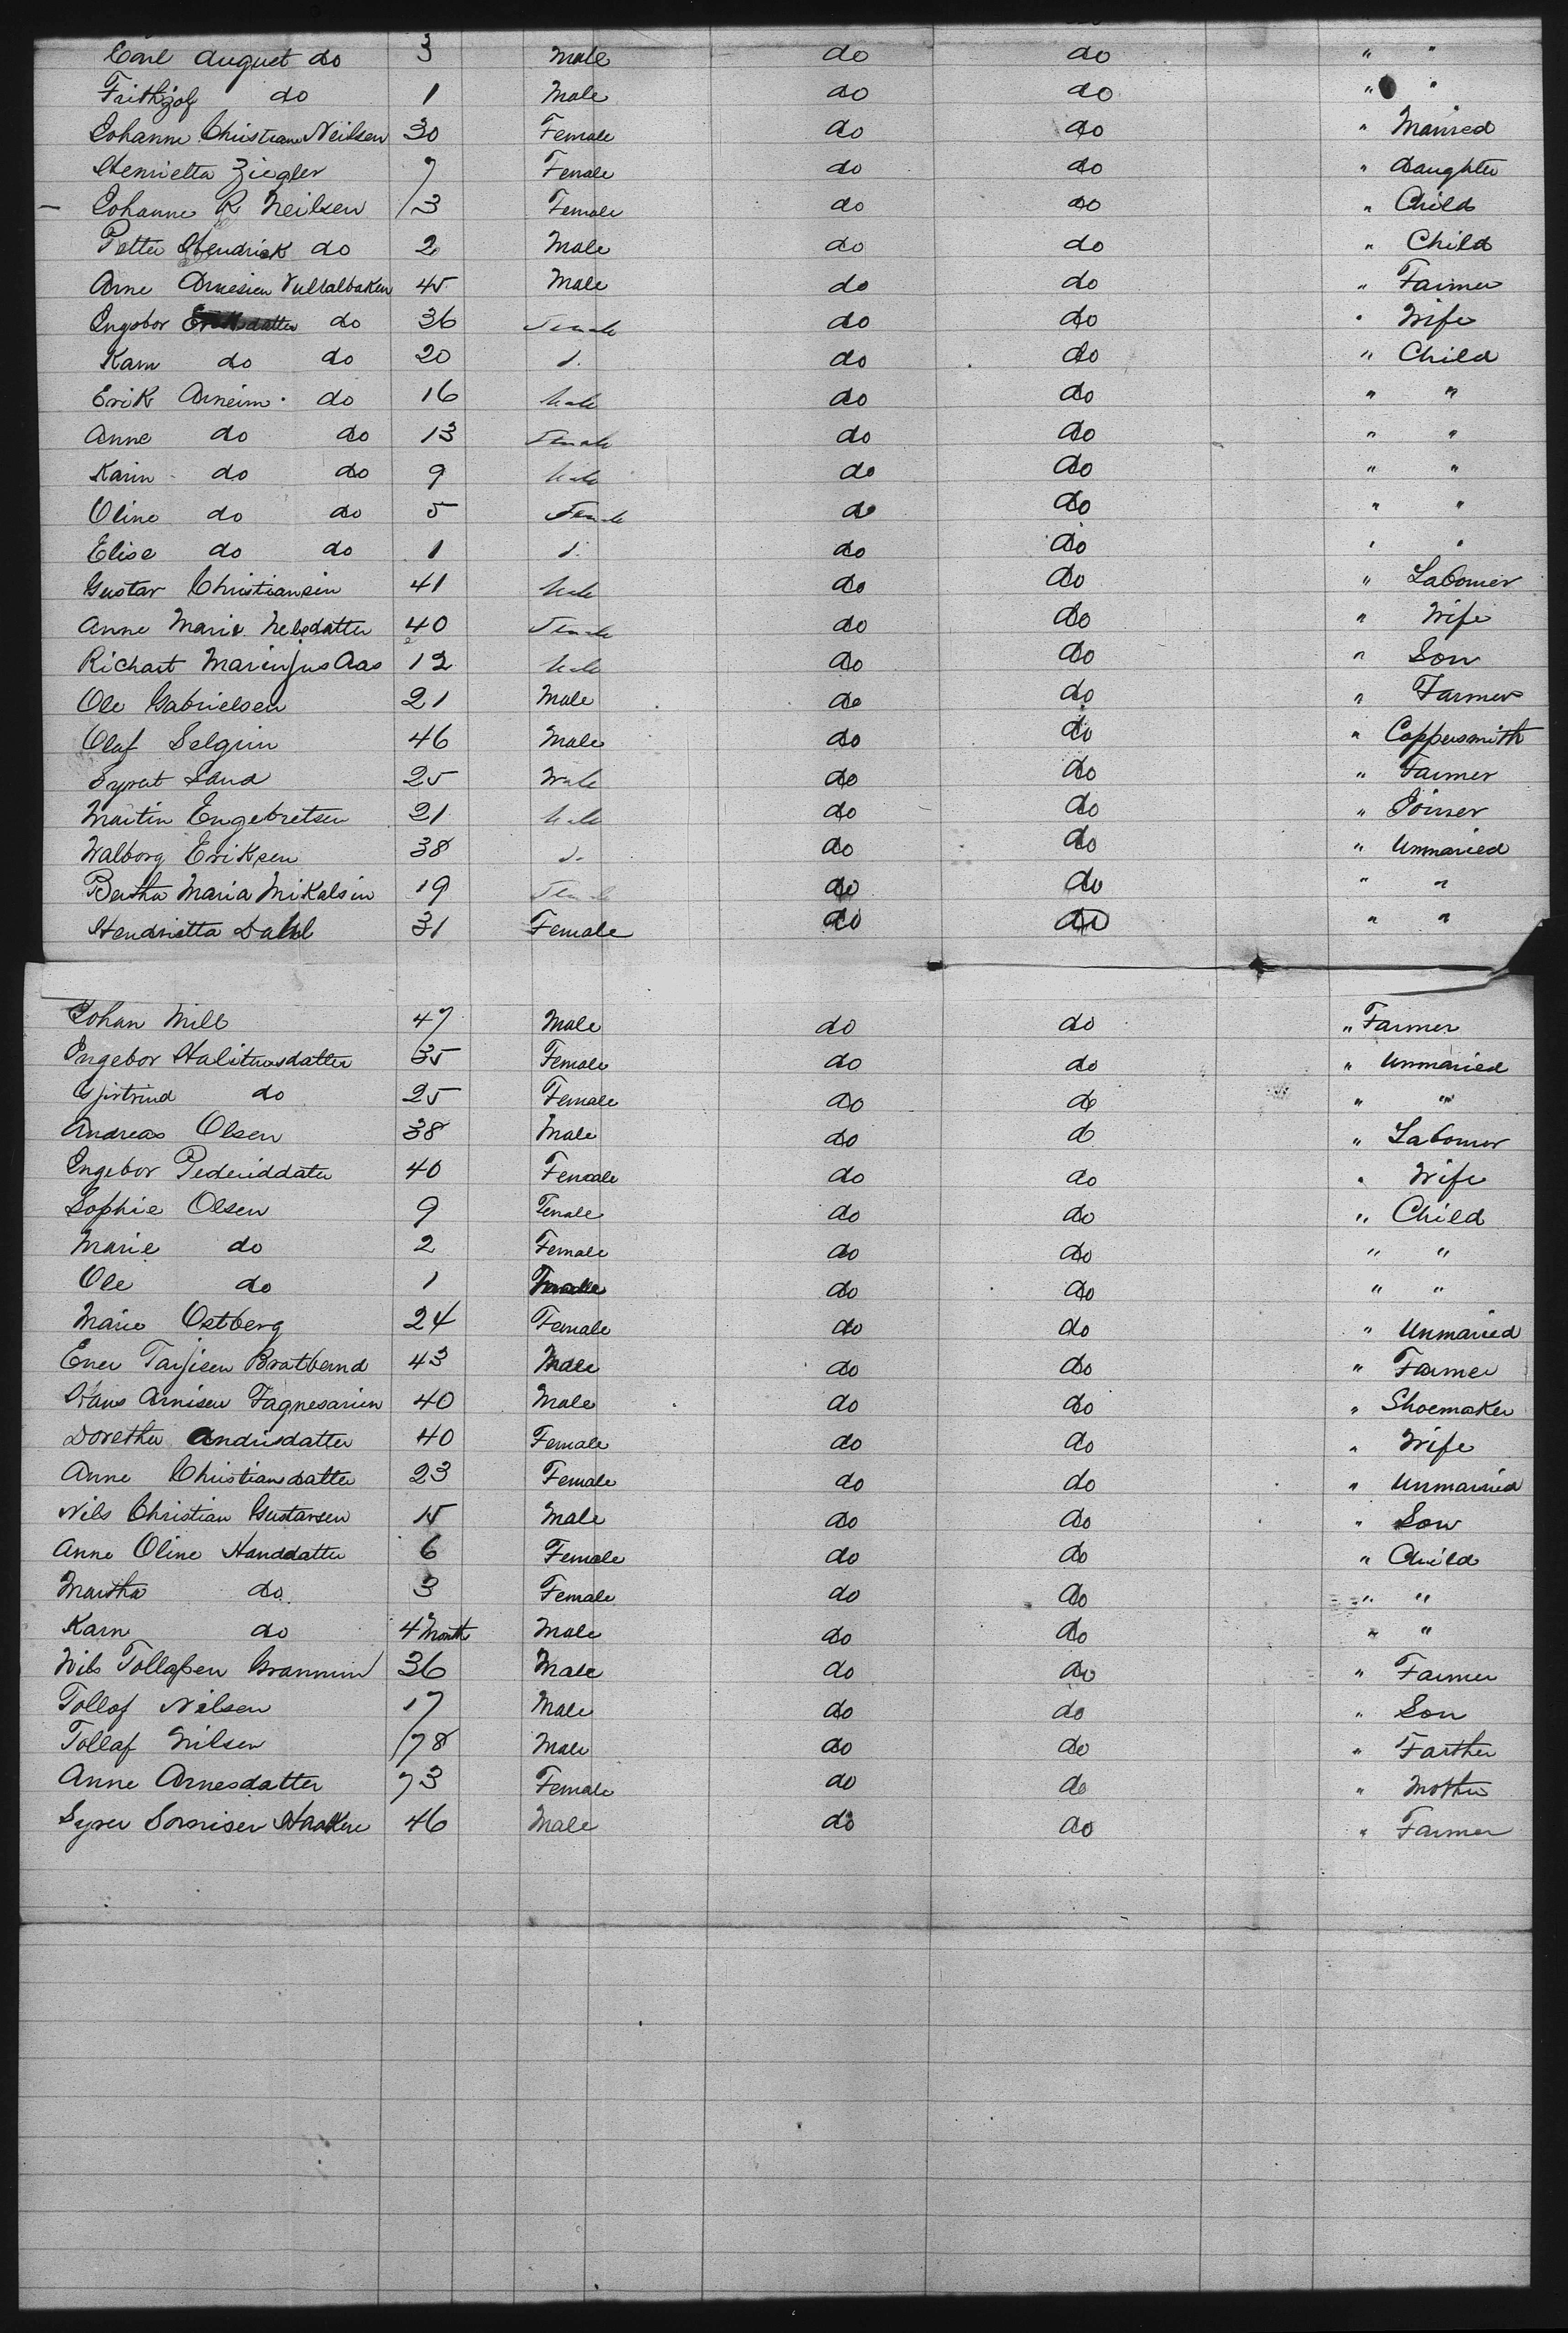 Carl August do 3 Male do do " "
Frithjof do 1 Male do do " "
Johanne Christiane Neilsen 30 Female do do " Maried
Henrietta Ziegler 7 Female do do " Daughter
Johanne R Neilsen 3 Female do do " Child
Petter Hendrick do 2 Male do do " Child
Arne Arnesien 45 Male do do " Farmer
Ingobor do 36 Female do do " Wife
Karn do do 20 do do " Child
Erik Arneim do 16 Male do do " "
Anne do do 13 Female do do " "
Karin do do 9 Male do do " "
Oline do do 5 Female do do " "
Elise do do 1 do do " "
Gustav Christiansin 41 Male do do " Labourer
Anne Marie Nelsdatter 40 Female do do " Wife
Richart Marinjus Aas 12 Male do do " Son
Ole Gabrielsen 21 Male do do " Farmer
Olaf Selgrim 46 Male do do " Coppersmith
Syvat Sand 25 Male do do " Farmer
Martin Engebretsen 21 Male do do " Joiner
Walborg Eriksen 38 do do " Unmaried
Bertha Maria Mikalsin 19 Female do do " "
Hendrietta Dahl 31 Female do do " "
Johan Mill 47 Male do do " Farmer
Ingebor 35 Female do do " Unmaried
Gjirtrind do 25 Female do do " "
Andreas Olsen 38 Male do do " Labourer
Ingebor Pedersdatter 40 Female do do " Wife
Sophie Olsen 9 Female do do " Child
Marie do 2 Female do do " "
Ole do 1 do do " "
Marie Ostberg 24 Female do do " Unmaried
Ener Tarjisen Bratbernd 43 Male do do " Farmer
Hans Arnisen Fagnesarien 40 Male do do " Shoemaker
Dorethea Andrisdatter 40 Female do do " Wife
Anne Christiansdatter 23 Female do do " Unmarried
Nils Christian Gustavsen 15 Male do do " Son
Anne Oline Hansdatter 6 Female do do " Child
Martha do 3 Female do do " "
Karn do 4 Month Male do do " "
Nils Tollafsen Grannum 36 Male do do " Farmer
Tollof Nilsen 17 Male do do " Son
Tollaf Nilsen 78 Male do do " Farther
Anne Arnesdatter 73 Female do do " Mother
Syver Sornisen 46 Male do do " Farmer